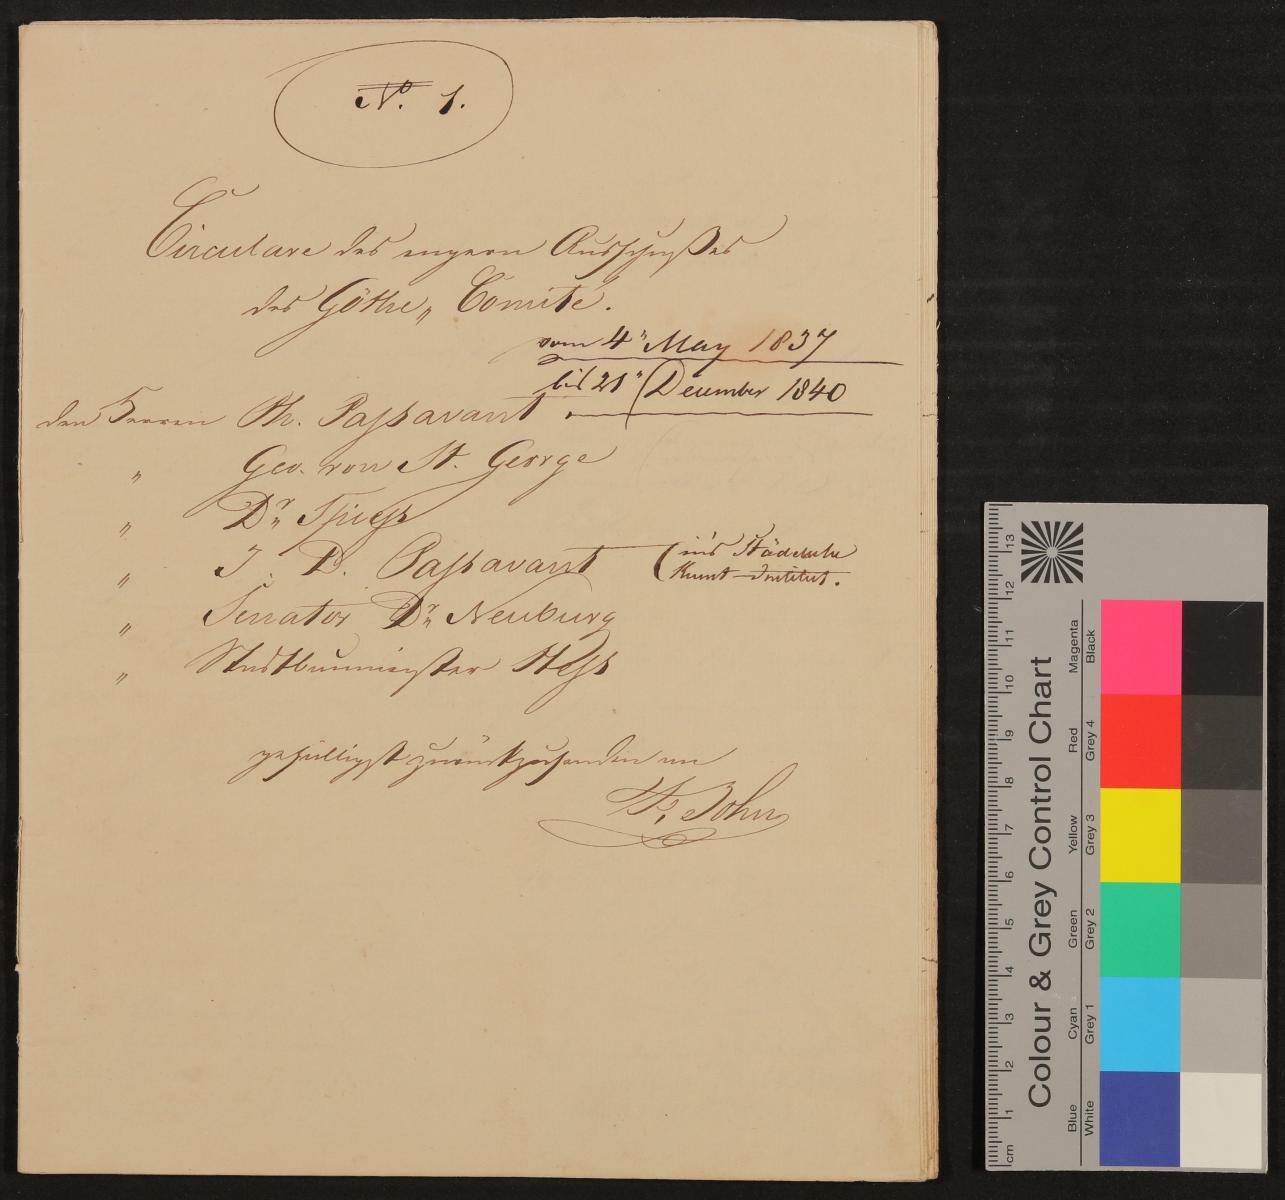 No. 1.
Circulare des engern Ausschußes
des Göthe„ Comité.
vom 4" May 1837
bis 21" December 1840
den Herren Ph. Passavant
" Geo. von St. George
" Dr. Spiess
" J. D. Passavant (in's Städelsche
Kunst-Institut.
" Senator Dr. Neuburg
" Stadtbaumeister Hess
gefälligst zurückzusenden an
Fr. John
Colour & Grey Control Chart
Blue Cyan Green Yellow Red Magenta
White Grey 1 Grey 2 Grey 3 Grey 4 Black
cm 1 2 3 4 5 6 7 8 9 10 11 12 13